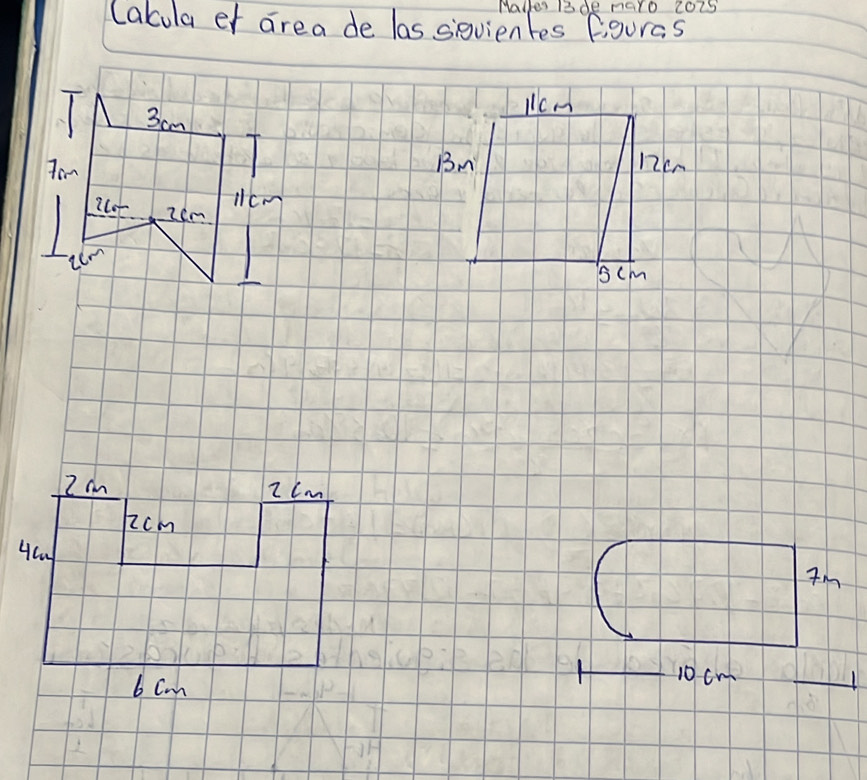 Martes 13 de mayo 2025
Calcula el área de las siguientes figuras
3cm
7cm
2cm 2cm
11cm
2cm
11cm
13m
12cm
5cm
2cm
2cm
2cm
4cm
6cm
7m
10cm